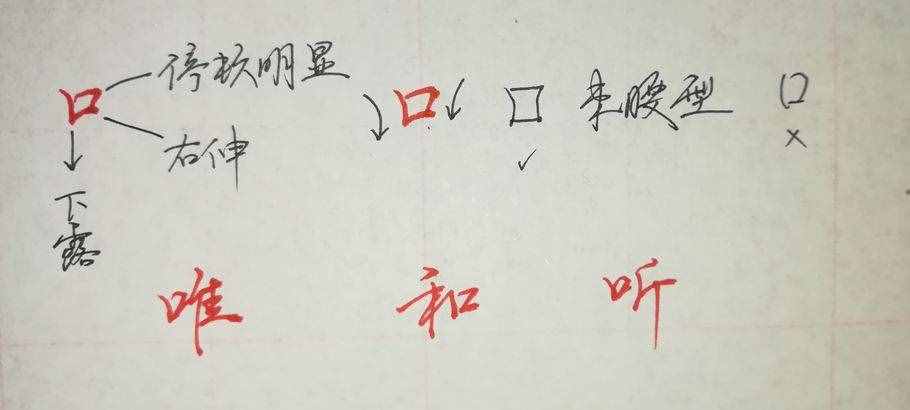 口 停顿明显
右伸
下露
口 束腰型
唯 和 听